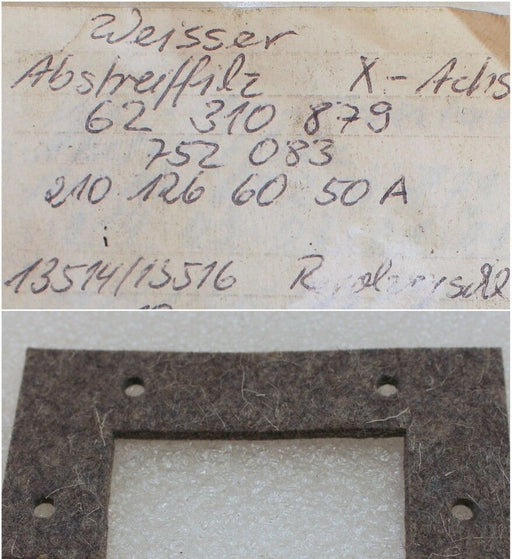 Weisser
Abstreiffilz X-Achs
62 310 879
752 083
210 126 60 50 A
13514/13516